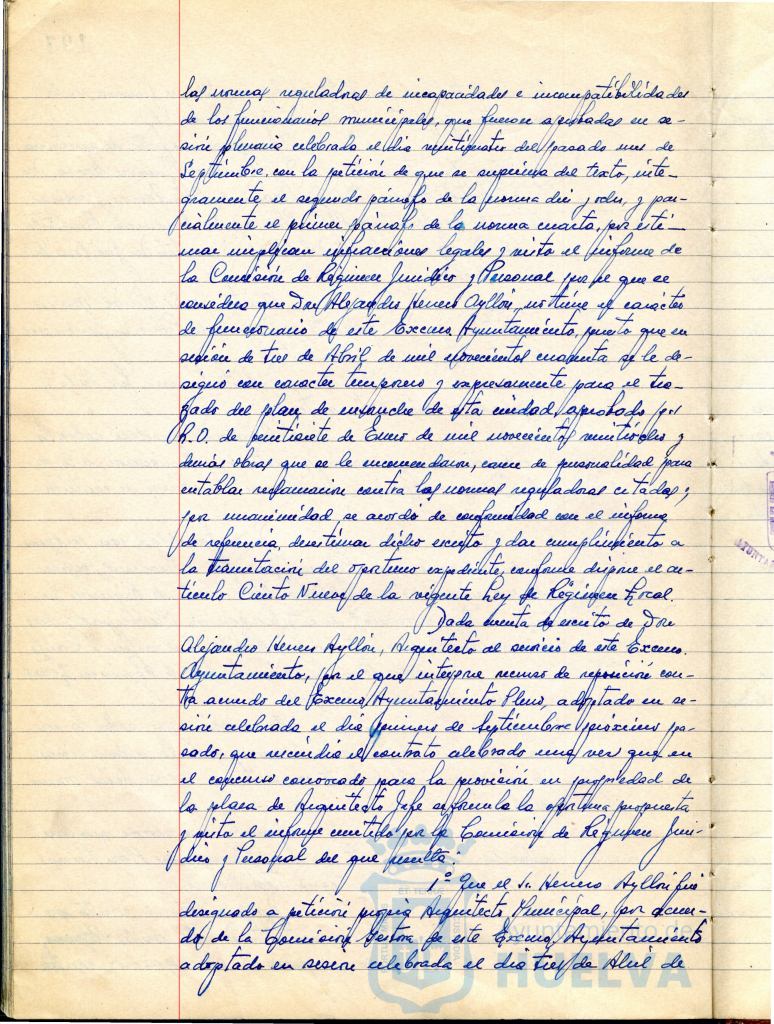 las normas reguladoras de incapacidades e incompatibilidades
de los funcionarios municipales, que fueron aprobadas en se-
sión plenaria celebrada el día veinticuatro del pasado mes de
Septiembre, con la petición de que se suprima del texto, ínte-
gramente, el segundo párrafo de la norma diez y ocho, y par-
cialmente el primer párrafo de la norma cuarta, por esti-
mar implican infracciones legales y visto el informe de
la Comisión de Régimen Jurídico y Personal por el que se
considera que Don Alejandro Herrero Ayllón, no tiene el carácter
de funcionario de este Excmo Ayuntamiento, puesto que en
sesión de tres de Abril de mil novecientos cuarenta se le de-
signó con caracter temporero y expresamente para el tra-
zado del plan de ensanche de esta ciudad aprobado por
R.O. de veintisiete de Enero de mil novecientos veintiocho y
demás obras que se le encomendaron, carece de personalidad para
entablar reclamación contra las normas reguladoras citadas;
por unanimidad, se acordó de conformidad con el informe
de referencia, desestimar dicho escrito y dar cumplimiento a
la tramitación del oportuno expediente, conforme dispone el ar-
tículo Ciento Nueve de la vigente Ley de Régimen Local.
Dada cuenta de escrito de Don
Alejandro Herrero Ayllón, Arquitecto al servicio de este Excmo.
Ayuntamiento, por el que interpone recurso de reposición con-
tra acuerdo del Excmo Ayuntamiento Pleno, adoptado en se-
sión celebrada el día primero de Septiembre próximo pa-
sado, que rescindía el contrato celebrado una vez que en
el concurso convocado para la provisión en propiedad de
la plaza de Arquitecto Jefe se formula la oportuna propuesta
y visto el informe emitido por la Comisión de Régimen Jurí-
dico y Personal del que resulta:
1º Que el Sr. Herrero Ayllón fué
designado a petición propia Arquitecto Municipal, por acuer-
do de la Comisión Gestora de este Excmo. Ayuntamiento
adoptado en sesión celebrada el día tres de Abril de
Ayuntamiento de
HUELVA